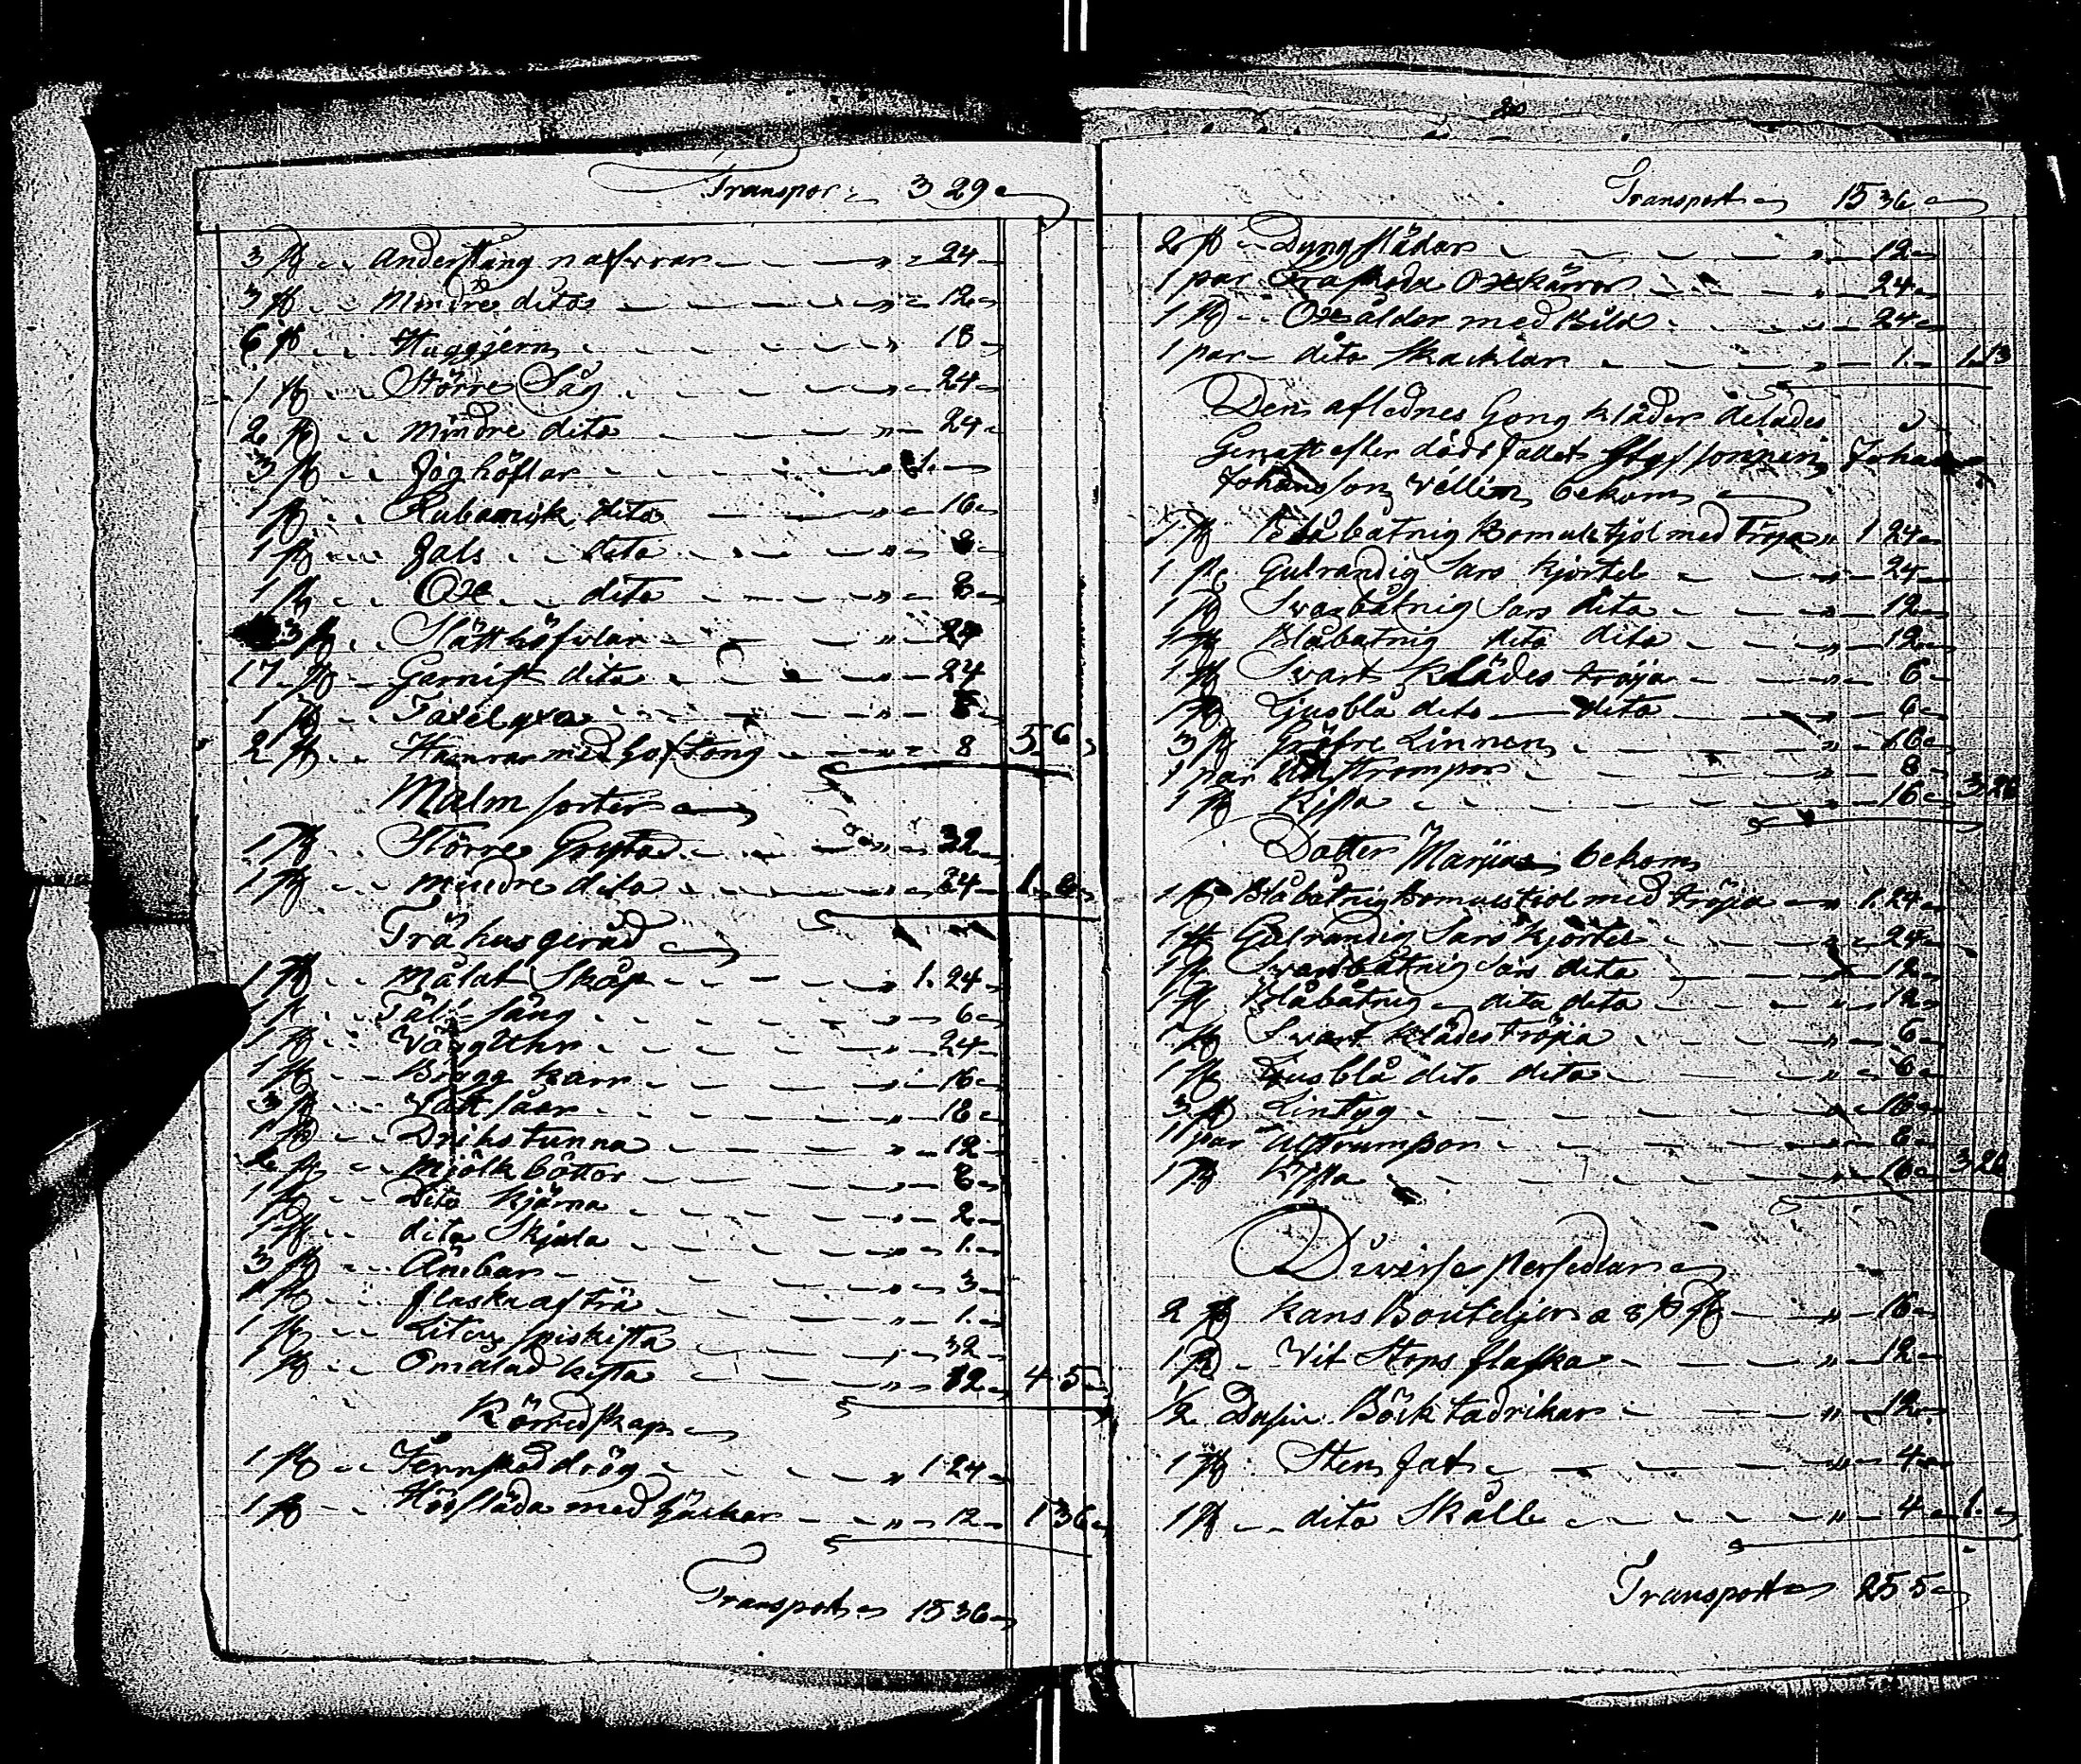 Transport 3 29
3 st Anderstång nafvrar 24
3 st Mindre ditos 12
6 st Huggjern 18
1 st Större Såg 24
2 st mindre dito 24
3 st Foghöflar 1.
1 st Rubamik dito 16
1 st Fals dito 8
1 st Oxe dito 8
3 st Slätthöfvlar 24
17 st Garnist dito 24
1 st Taxelyxa 8
2 st Hamrar med Hoftong 8 5 6
Malm sorter
1 st Större Gryta 32
1 st mindre dito 24 1. 8
Trähusgeråd
1 st målat Skåp 1. 24
1 st Täl sång 6
1 st Vägg Uhr 24
1 st Brygg karr 16
3 st Vatt såar 18
1 st Drikstunna 12
st mjölk böttor 8
1 st Dito kjärna 2
1 st dito Skjula 1.
3 st Ämbar 3
1 st flaska af trä 1.
1 st Liten spiskista 32
1 st Omålad kista 12 4. 5
Körredskap
1 st Jernskod drög 1 24
1 st Hösläda med häckar 12 1 36
Transport 15 36
Transport 15 36
2 st Dyngslädar 12
1 par Oxekärror 24
1 st Oxeålder med Bild 24
1 par dito Skacklar 1. 1. 13
Den aflednes Gong kläder delades
Genast efter dödsfallet Styfsonnen Johan
Johansson Vellin bekom
1 st Blåbatnig Bomulstjol med Tröja 1 24
1 st Gulrandig Sars kjortel 24
1 st Swartbåtnig Sars dito 12
1 st Blåbatnig dito dito 12
1 st Swart Klädes tröja 6
1 st Ljusblå dito dito 6
3 st Gröfre Linnen 16
1 par Ulstrompor 8
1 st Kista 16 3 28
Dotter Marjias bekom
1 st Blåbåtnig Bomulstiol med tröjia 1. 24
1 st Gulrandig Sars kjortel 24
1 st Swartbåtnig Sars dito 12
1 st Blåbåtnig dito dito 12
1 st Swart Klädes tröjia 6
1 st Ljusblå dito dito 6
3 st Lintyg 16
1 par Ulstrumpor 8
1 st Kista 16 3 28
Diverse Persedlar
2 st kans Bouteljer a 8 s st 16
1 st Vit Stops flaska 12
1/2 Dusin Böck tadrikar 12
1 st Sten fat 4
1 st dito Skåll 4 1.
Transport 25 5